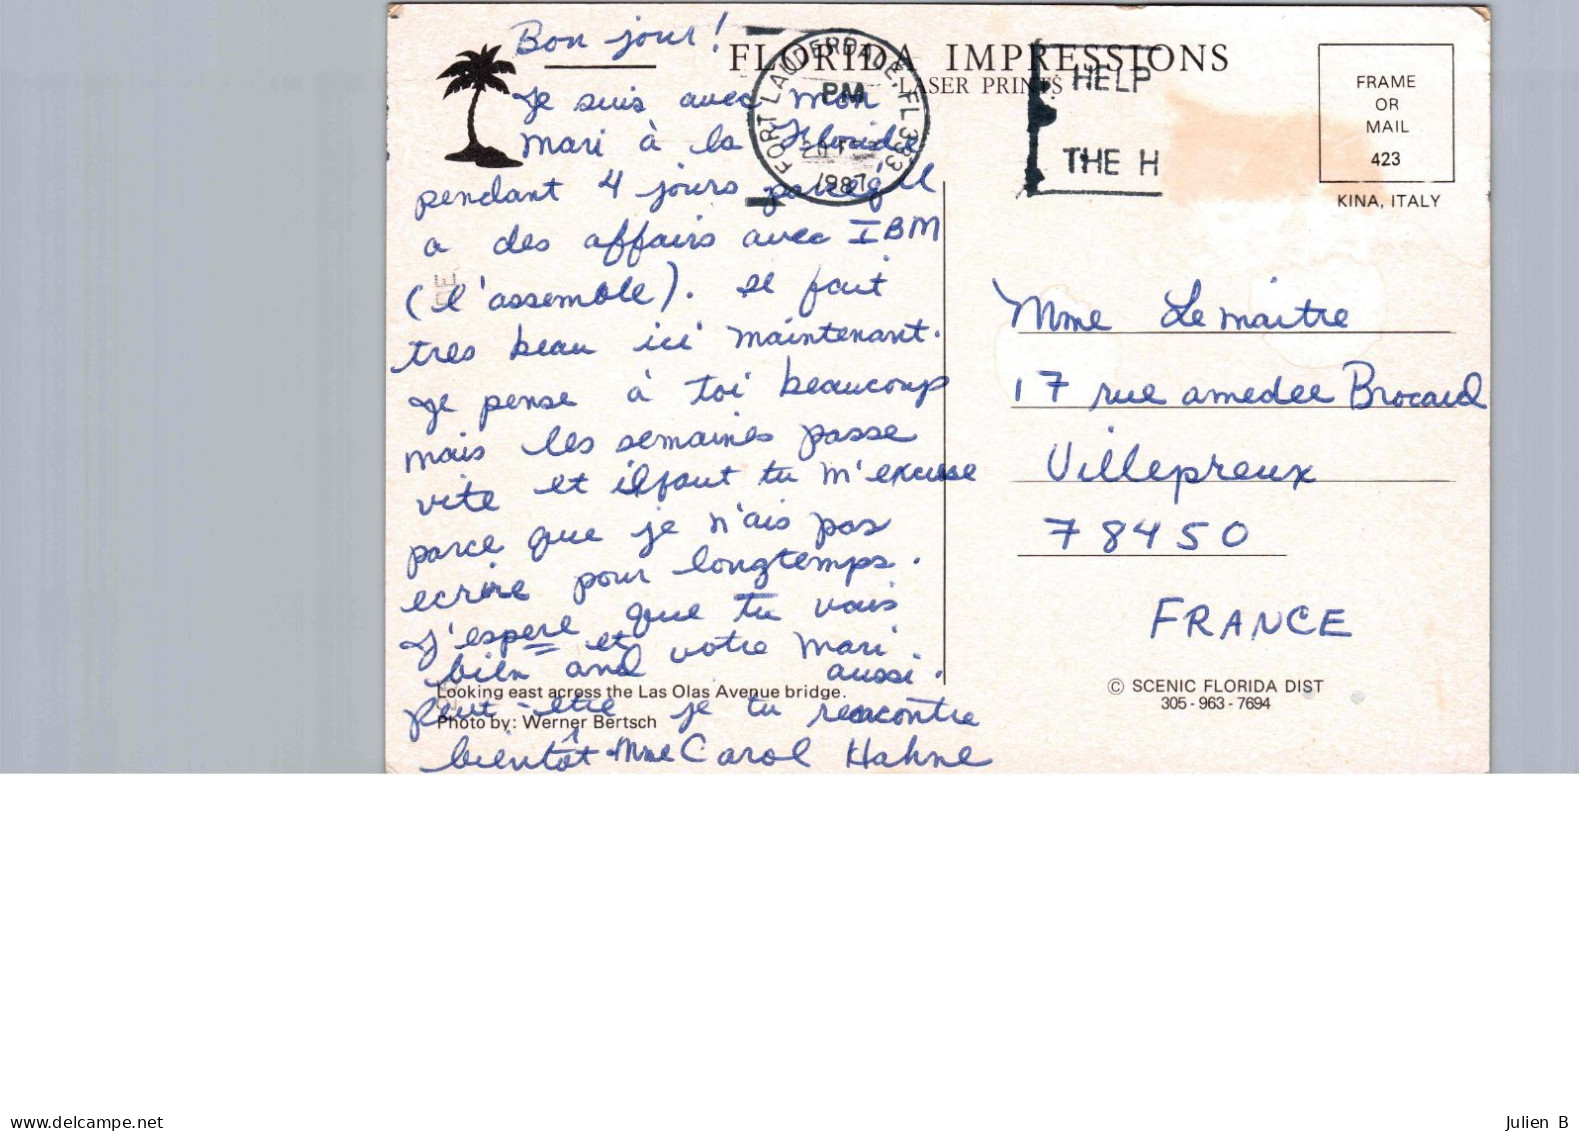 Bon jour!
FLORIDA IMPRESSIONS
LASER PRINTS
Je suis avec mon
mari à la Floride
pendant 4 jours parcéqu'il
a des affairs avec IBM
(l'assemble). Il fait
tres beau ici maintenant.
Je pense à toi beaucoup
mais les semaines passe
vite et ilfaut tu m'excuse
parce que je n'ais pas
ecrire pour longtemps.
J'espere que tu vais
bien and et votre mari
aussi.
Peut-etre je tu rencontre
bientôt. Mme Carol Hahne
Looking east across the Las Olas Avenue bridge.
Photo by: Werner Bertsch
FORT LAUDERDALE, FL 333
PM
1987
HELP
THE H
FRAME
OR
MAIL
423
KINA, ITALY
Mme Lemaitre
17 rue amedee Brocard
Villepreux
78450
FRANCE
© SCENIC FLORIDA DIST
305-963-7694
www.delcampe.net
Julien B